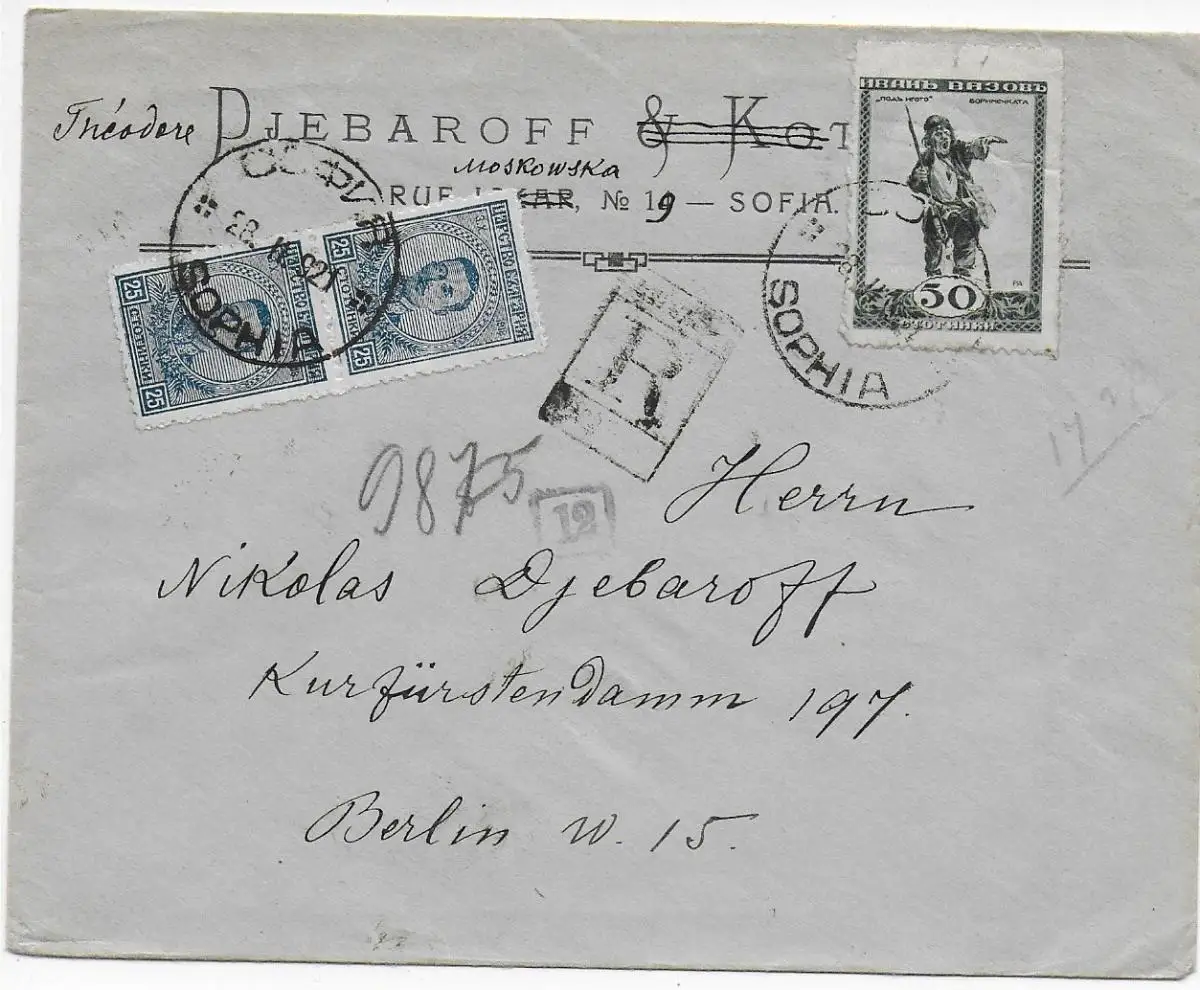 Théodore DJEBAROFF & KO
MOSKOWSKA
RUE ISKAR, № 19 — SOFIA.
ИВАНЪ ВАЗОВЪ
„ПОДЪ ИГОТО" БОРИМЕЧКАТА
РА
50
СТОТИНКИ
СОФИЯ
28. 920
SOPHIA
ЦАРСТВО БЪЛГАРИЯ
25 СТОТИНКИ 25
ЦАРСТВО БЪЛГАРИЯ
25 СТОТИНКИ 25
SOPHIA
R
9875
12
Herrn
Nikolas Djebaroff
Kurfürstendamm 197.
Berlin W. 15.